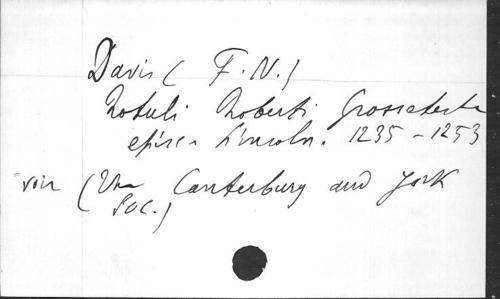 Davis (F. N.)
Rotuli Roberti Grosseteste
episc. Lincoln. 1235-1253
voir (The Canterbury and York
Soc.)